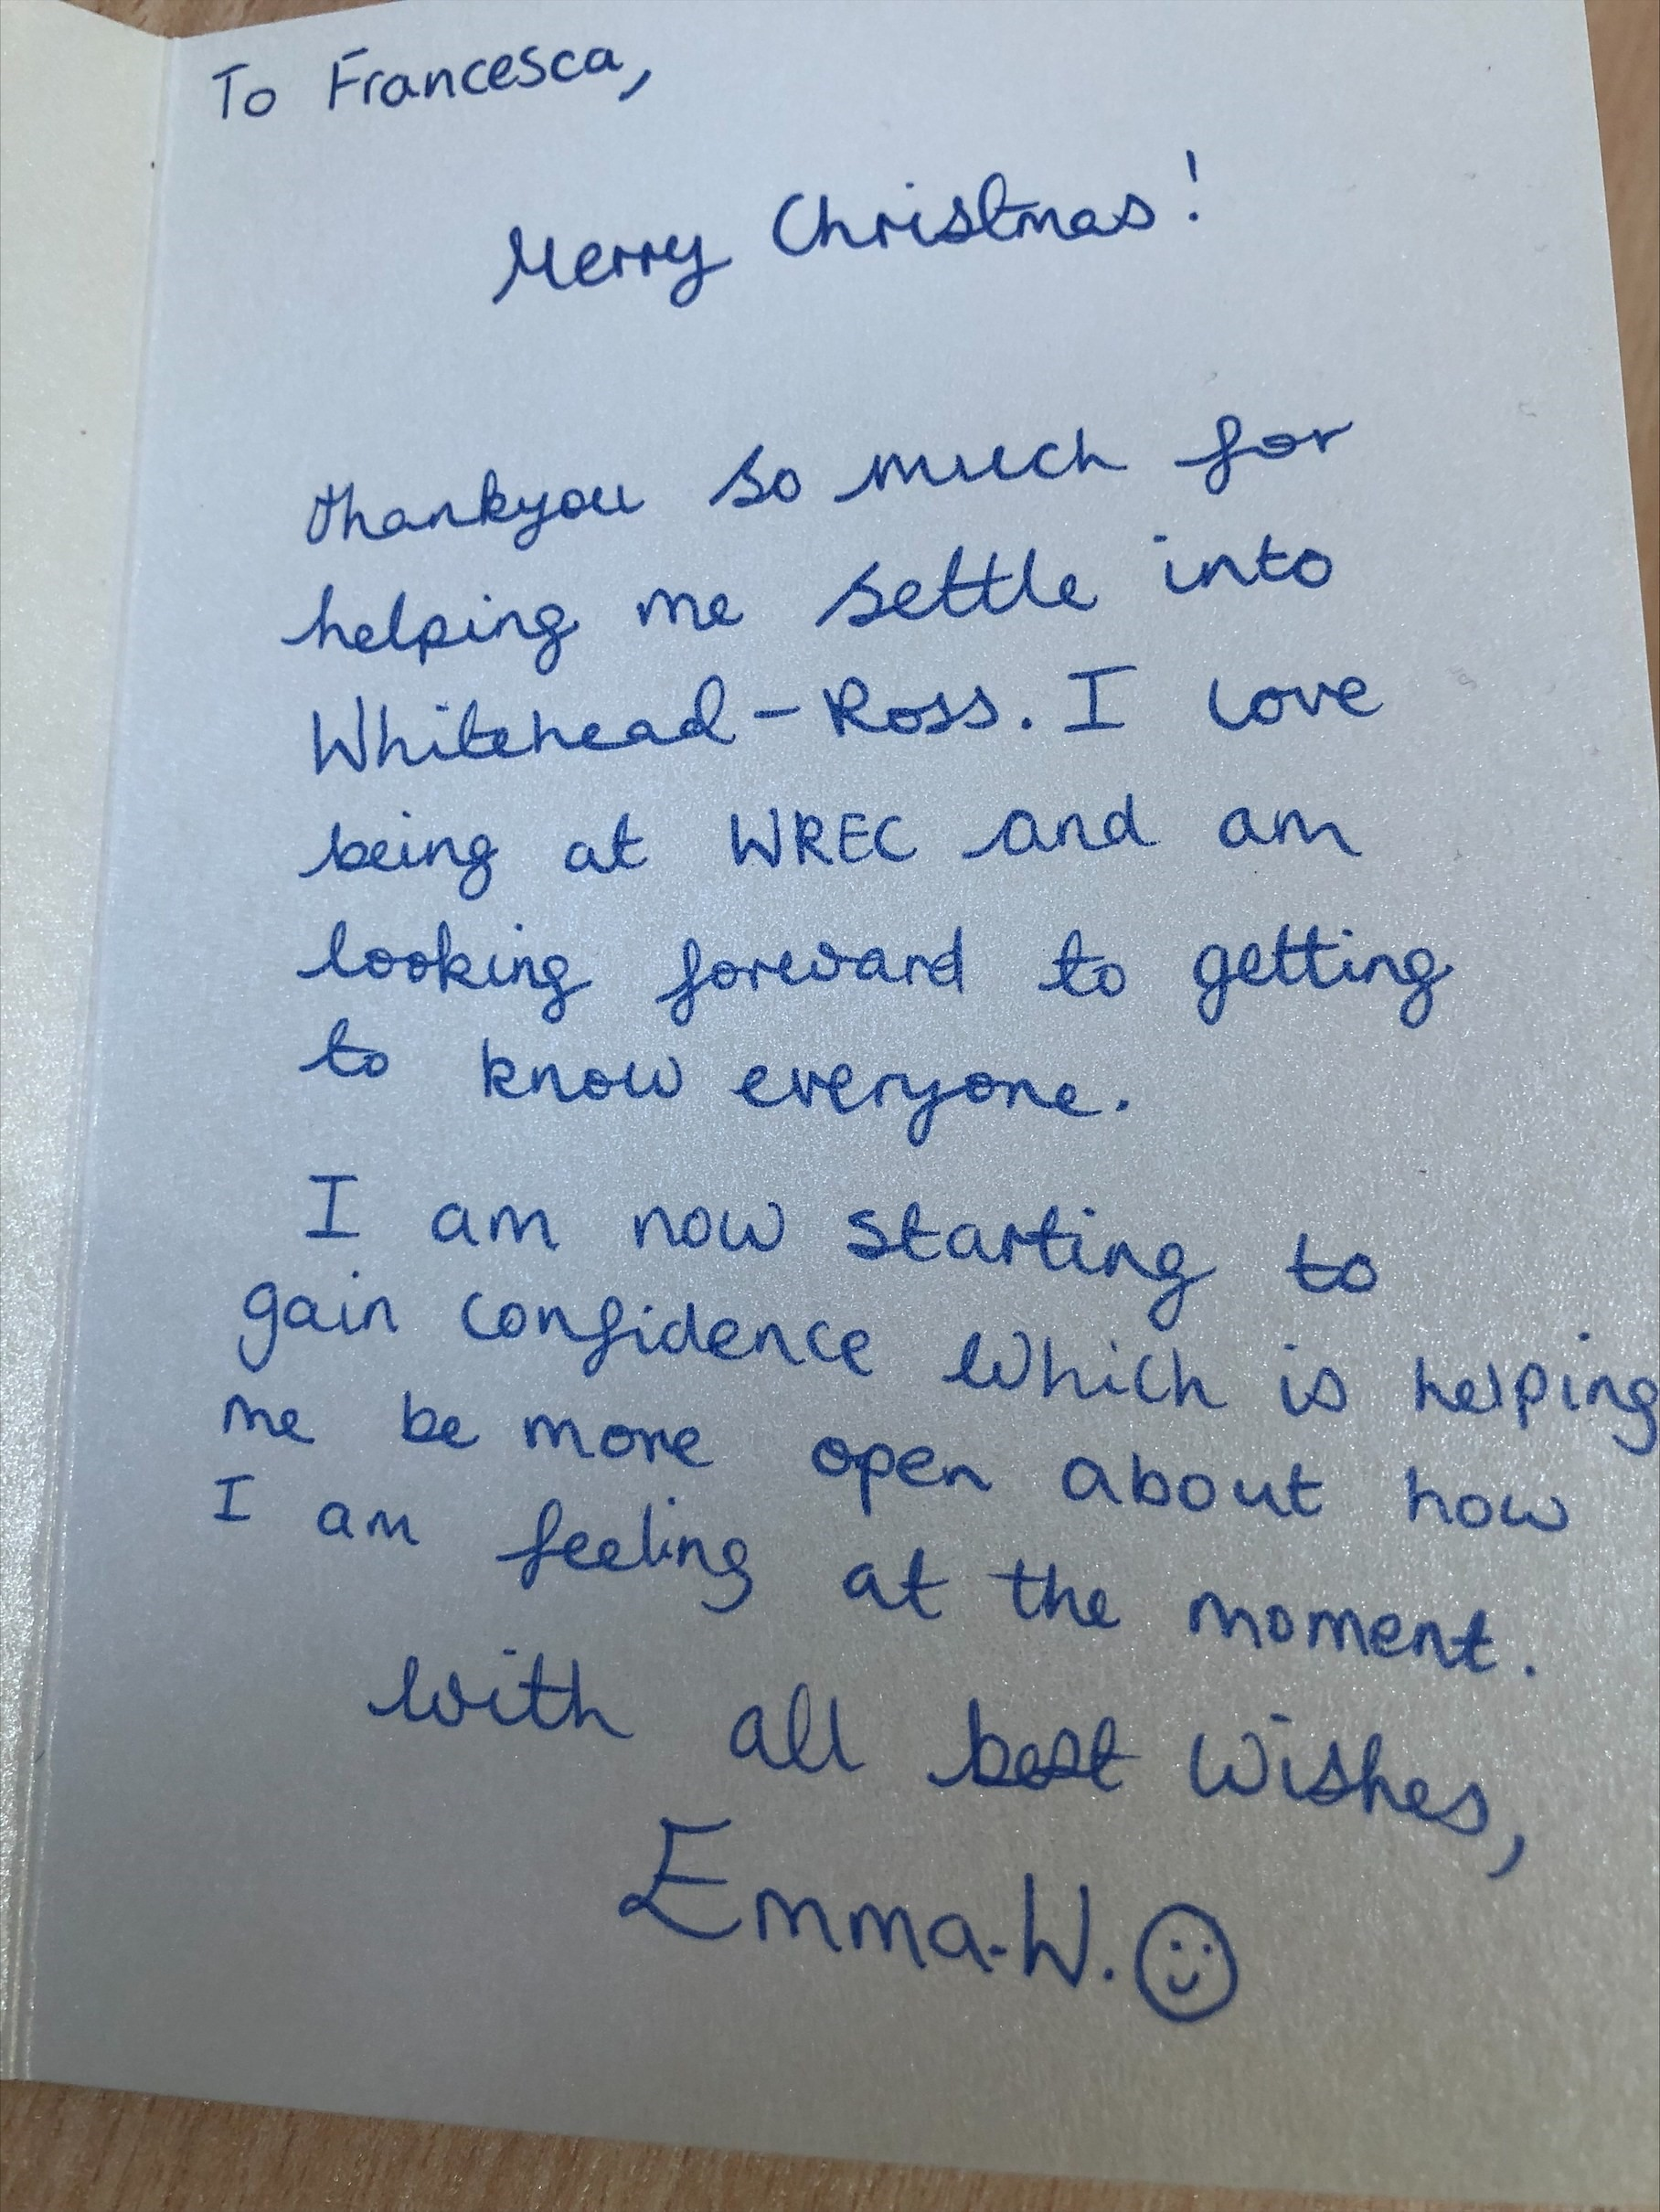 To Francesca,
Merry Christmas!
thankyou so much for
helping me settle into
Whitehead-Ross. I love
being at WREC and am
looking forward to getting
to know everyone.
I am now starting to
gain confidence which is helping
me be more open about how
I am feeling at the moment.
with all best wishes,
Emma.W.